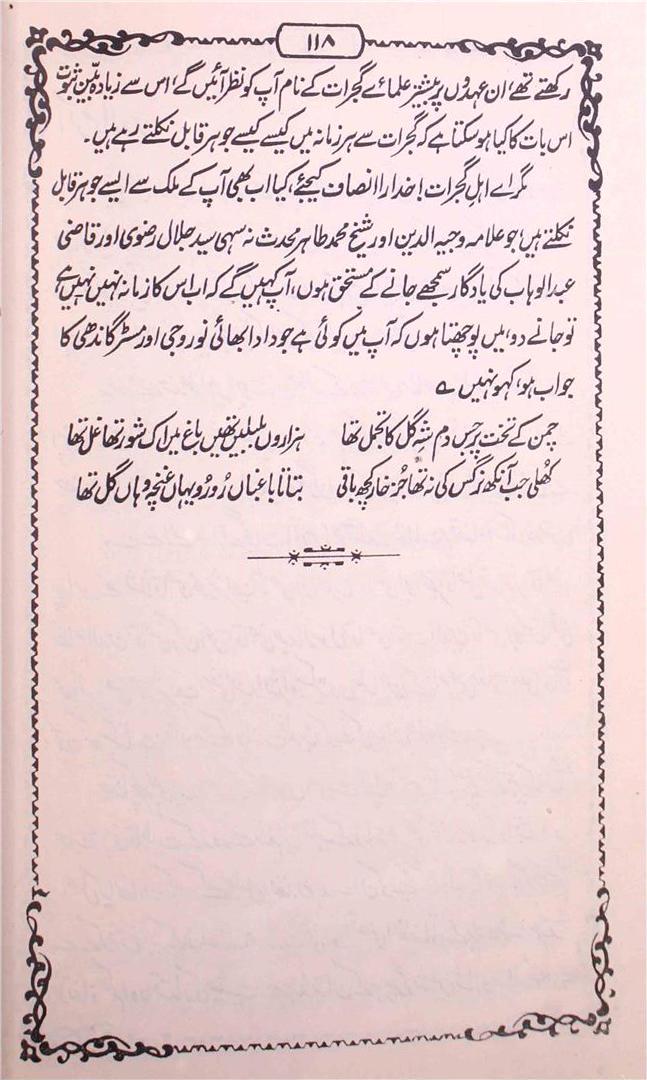 ۱۱۸
رکھتے تھے، ان عہدوں پر بیشتر علمائے گجرات کے نام آپ کو نظر آئیں گے، اس سے زیادہ بیّن ثبوت
اس بات کا کیا ہو سکتا ہے کہ گجرات سے ہر زمانہ میں کیسے کیسے جوہر قابل نکلتے رہے ہیں۔
مگر اے اہل گجرات! خدارا انصاف کیجئے، کیا اب بھی آپ کے ملک سے ایسے جوہر قابل
نکلتے ہیں، جو علامہ وجیہ الدین اور شیخ محمد طاہر محدث نہ سہی سید جلال رضوی اور قاضی
عبدالوہاب کی یادگار سمجھے جانے کے مستحق ہوں، آپ کہیں گے کہ اب اس کا زمانہ نہیں نہیں ہے
تو جانے دو، میں پوچھتا ہوں کہ آپ میں کوئی ہے جو دادا بھائی نوروجی اور مسٹر گاندھی کا
جواب ہو، کہو نہیں ؎
چمن کے تخت پر جس دم شہِ گل کا تجمل تھا ہزاروں بلبلیں تھیں باغ میں اک شور تھا غل تھا
کھلی جب آنکھ نرگس کی نہ تھا جُز خار کچھ باقی بتاتا باغباں رُو رُو یہاں غنچہ وہاں گل تھا